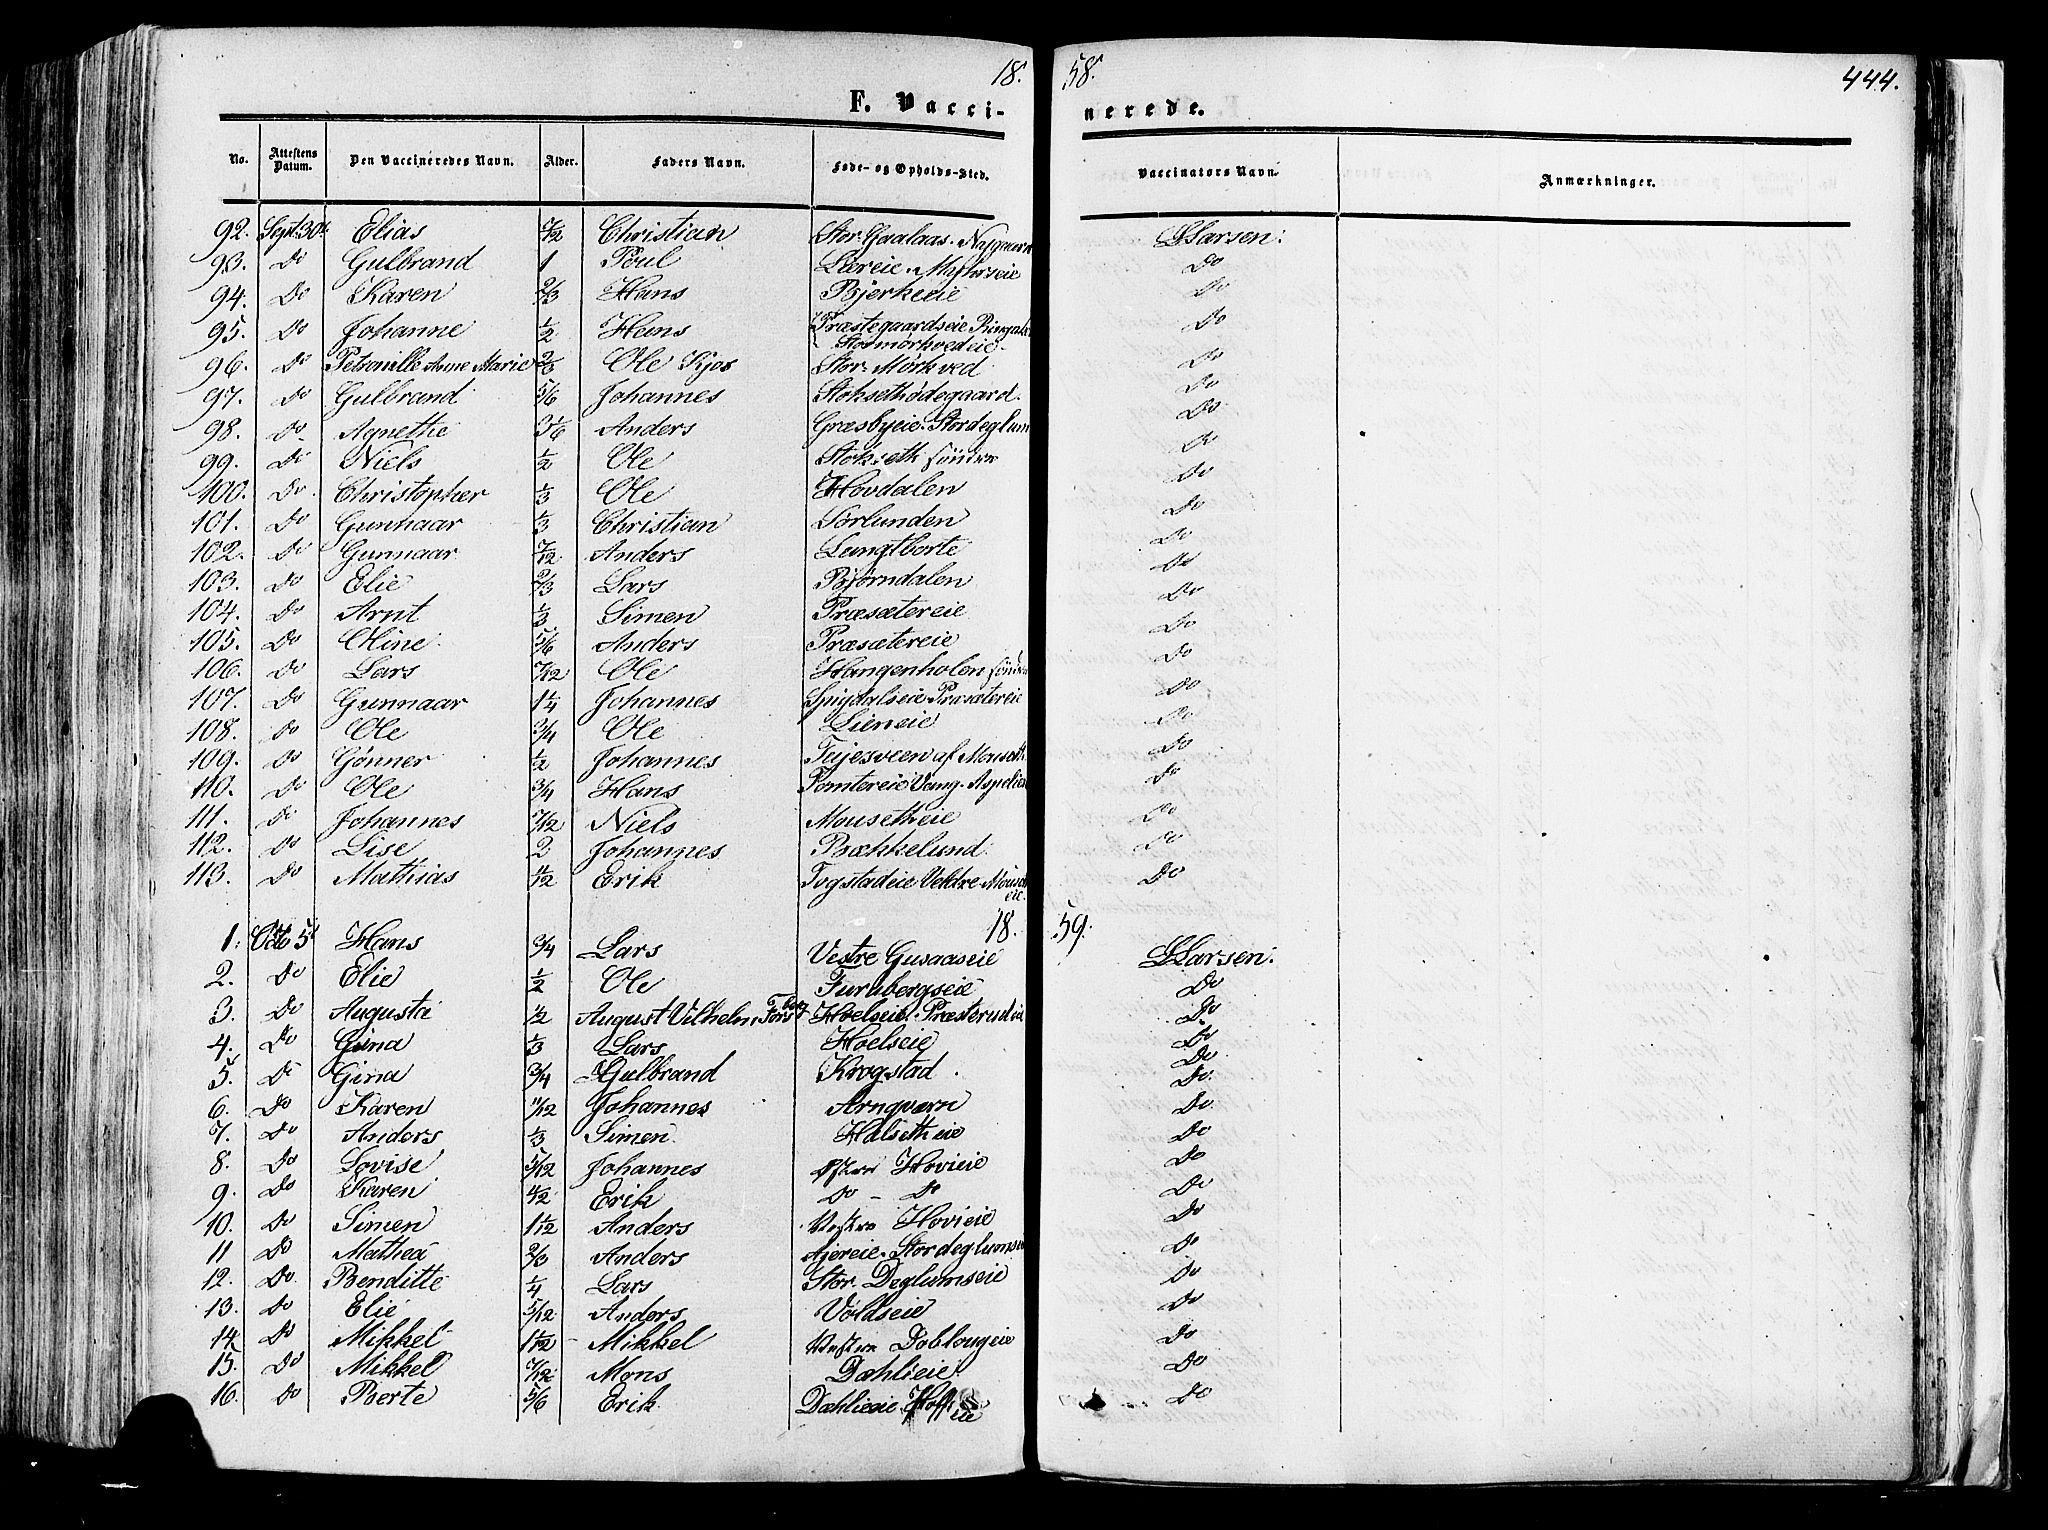 18. 58. 444.
F. Vacci- nerede.
No. Attestens Datum. Den Vaccineredes Navn. Alder. Faders Navn. Føde- og Opholds-Sted. Vaccinators Navn. Anmærkninger.
92. Sept. 30te Elias 7/12 Christian Stor Gaalaas. LLarsen.
93. Do Gulbrand 1 Poul Do
94. Do Karen 2/3 Hans Bjerkeeie Do
95. Do Johanne 1/2 Hans Præstegaardseie Do
Stormørkvedeie.
96. Do Petronille Anne Marie 2/3 Ole Kjos Stor. Mørkved Do
97. Do Gulbrand 5/6 Johannes Stoksethødegaard. Do
98. Do Agnethe 3 1/6 Anders Græsbyeie. Stordeglum Do
99. Do Niels 1/2 Ole Stokseth søndre Do
100. Do Christopher 1/3 Ole Hovdalen Do
101. Do Gunnaar 1/3 Christian Sørlunden Do
102. Do Gunnaar 7/12 Anders Langtborte Do
103. Do Elie 2/3 Lars Bjørndalen Do
104. Do Arnt 1/3 Simen Præsætereie Do
105. Do Oline 5/6 Anders Præsætereie Do
106. Do Lars 7/12 Ole Hangenholen søndre Do
107. Do Gunnaar 1 1/4 Johannes Spigdalseie Præsætereie Do
108. Do Ole 3/4 Ole Lieneie Do
109. Do Gønner 1/2 Johannes Teijesveen af Mouseth Do
110. Do Ole 3/4 Hans Tomtereie Vang. Do
111. Do Johannes 7/12 Niels Mousetheie Do
112. Do Lise 2 Johannes Bækkelund Do
113. Do Mathias 4/12 Erik Togstadeie Veldre Mouseth Do
eie.
18. 59.
1. Octo 5te Hans 3/4 Lars Vestre Gusaaseie LLarsen.
2. Do Elie 1/2 Ole Furubergseie Do
3. Do Augusta 1/2 August Vilhelm Hoelseie. Præsterudeie Do
4. Do Gina 1/3 Lars Hoelseie Do
5. Do Gina 3/4 Gulbrand Krogstad. Do
6. Do Karen 11/12 Johannes Arnqværn Do
7. Do Anders 1/3 Simen Halsetheie Do
8. Do Lovise 5/12 Johannes Østre Hovieie Do
9. Do Karen 4/12 Erik Do - Do Do
10. Do Simen 1 1/12 Anders Vestre Hovieie Do
11 Do Mathea 2/3 Anders Ajereie. Stordeglumseie Do
12. Do Benditte 1/4 Lars Stor. Deglumseie Do
13. Do Elie 5/12 Anders Voldseie Do
14. Do Mikkel 1 1/12 Mikkel Vestre Doblougeie Do
15. Do Mikkel 7/12 Mons Dæhlieie Do
16. Do Berte 5/6 Erik Dæhlieie Do